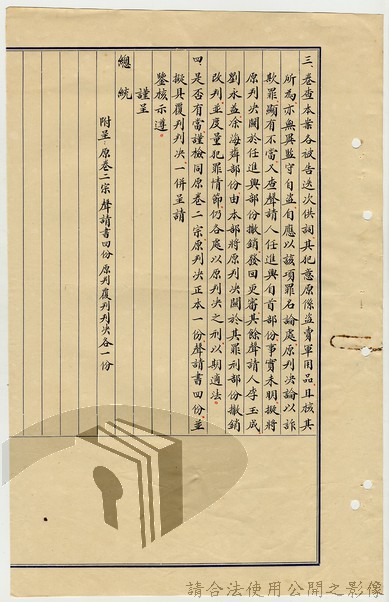 三、卷查本案各被告迭次供詞其犯意原係盜賣軍用品且核其
所為亦無異監守自盜自應以該項罪名論處原判決論以詐
欺罪顯有不當又查聲請人任進興自首部份事實未明擬將
原判決關於任進興部份撤銷發回更審其餘聲請人李玉成
劉永並涂海舜部份由本部將原判決關於其罪刑部份撤銷
改判並度量犯罪情節仍各處以原判決之刑以期適法。
四、是否有當謹檢同原卷二宗原判決正本一份聲請書四份並
擬具覆判判決一併呈請
鑒核示遵。
謹呈
總統
附呈：原卷二宗聲請書四份原判覆判判決各一份
請合法使用公開之影像